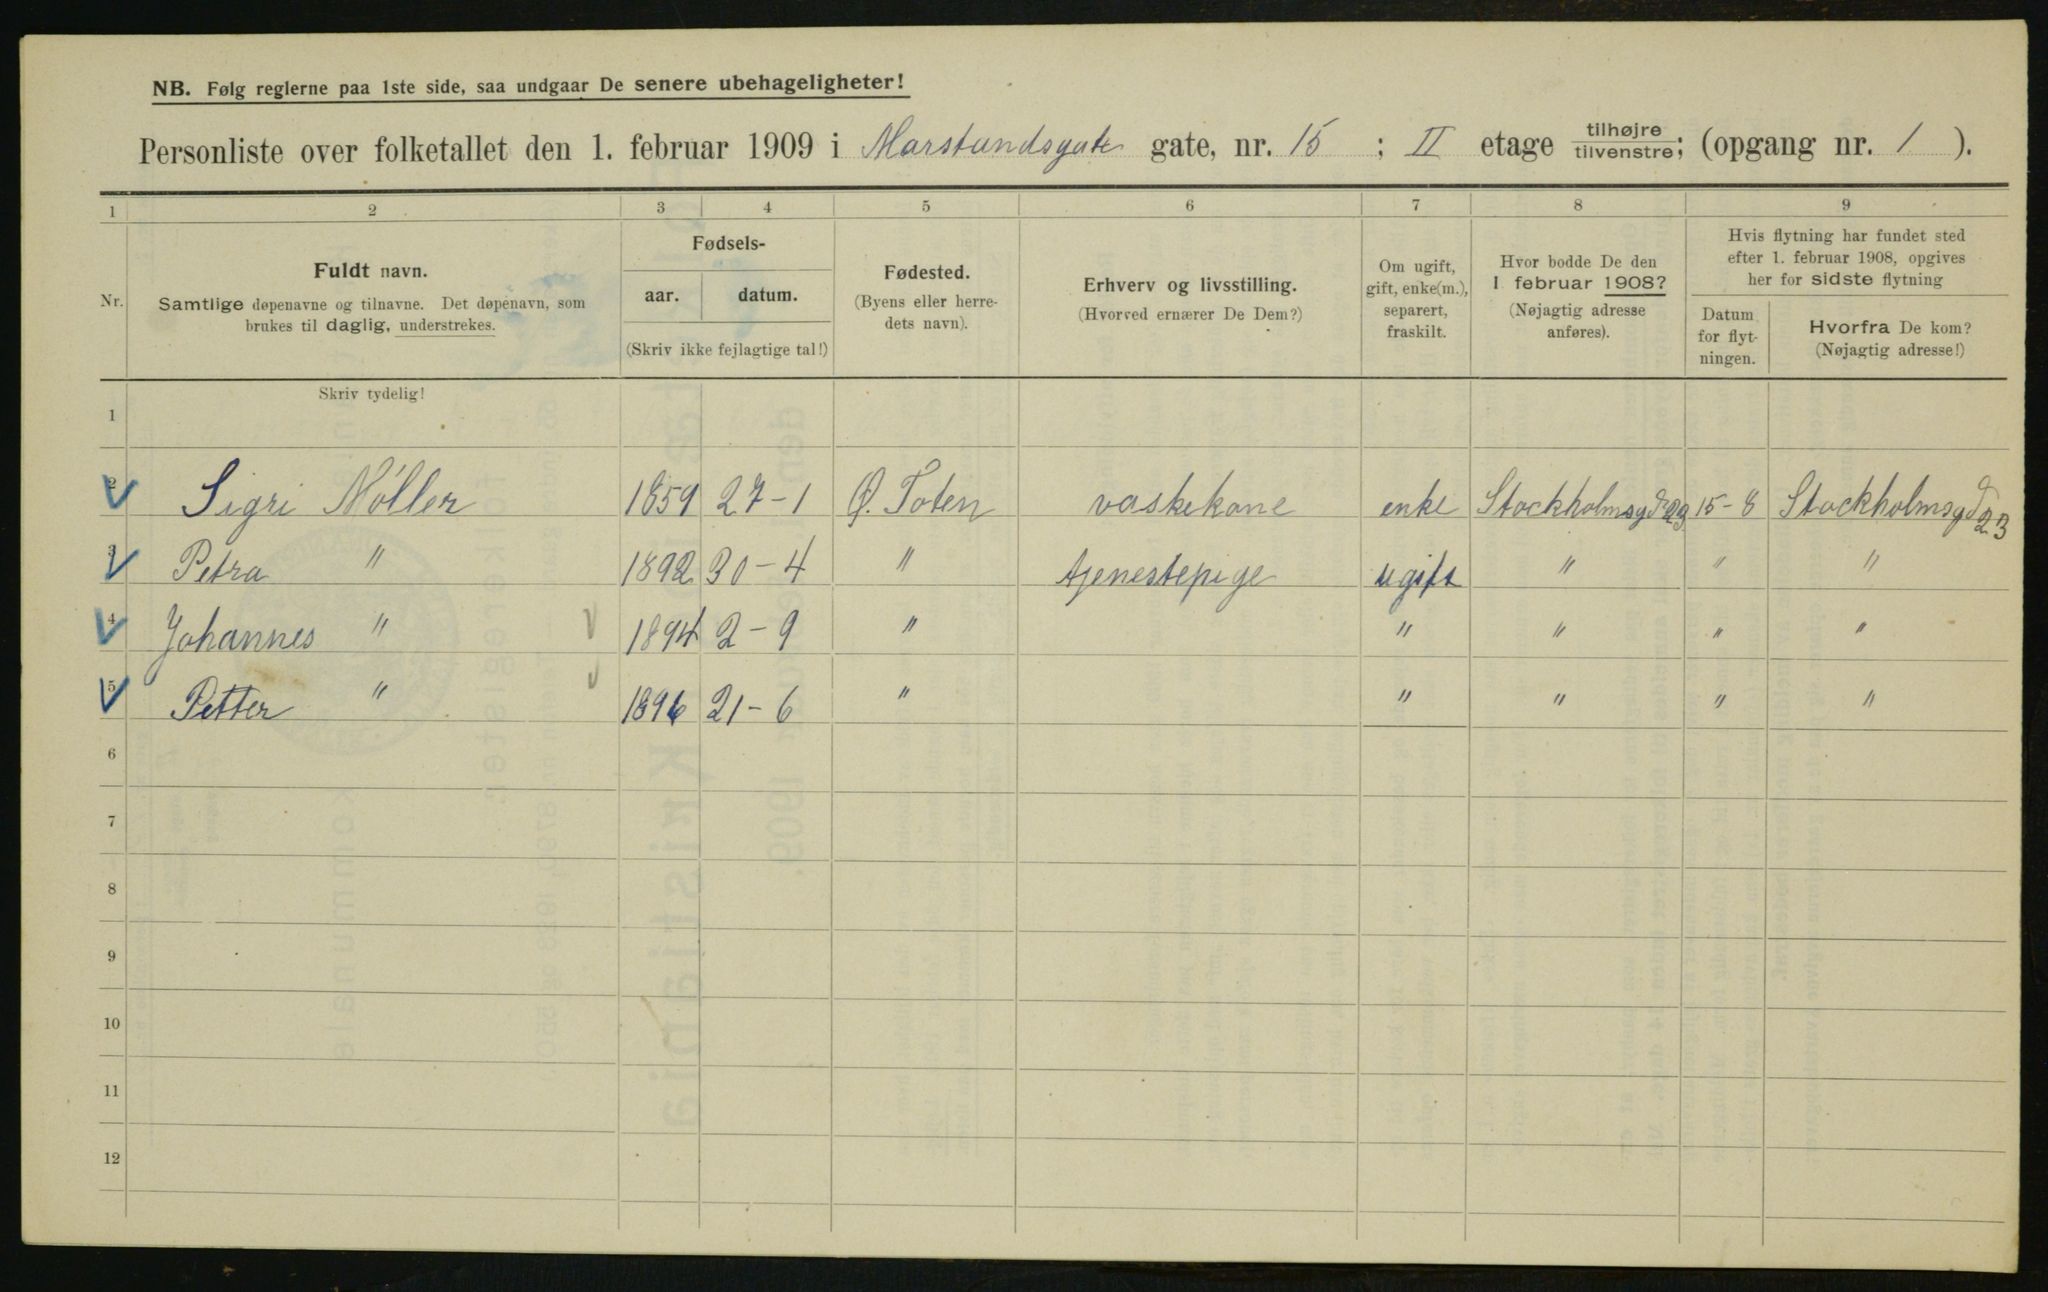 NB. Følg reglerne paa 1ste side, saa undgaar De senere ubehageligheter!
Personliste over folketallet den 1. februar 1909 i Marstandsgate gate, nr. 15 ; II etage tilhøjre/tilvenstre; (opgang nr. 1 ).
1 2 3 4 5 6 7 8 9
Nr.
Fuldt navn.
Samtlige døpenavne og tilnavne. Det døpenavn, som
brukes til daglig, understrekes.
Fødsels-
aar. datum.
(Skriv ikke fejlagtige tal!)
Fødested.
(Byens eller herre-
dets navn).
Erhverv og livsstilling.
(Hvorved ernærer De Dem?)
Om ugift,
gift, enke(m.),
separert,
fraskilt.
Hvor bodde De den
1 februar 1908?
(Nøjagtig adresse
anføres).
Hvis flytning har fundet sted
efter 1. februar 1908, opgives
her for sidste flytning
Datum
for flyt-
ningen.
Hvorfra De kom?
(Nøjagtig adresse!)
Skriv tydelig!
1
2 Sigri Møller 1859 27-1 Ø. Toten vaskekone enke Stockholmsgd 23 15-8 Stockholmsgd 23
3 Petra " 1892 30-4 " tjenestepige ugift " " "
4 Johannes " 1894 2-9 " " " " "
5 Petter " 1896 21-6 " " " " "
6
7
8
9
10
11
12